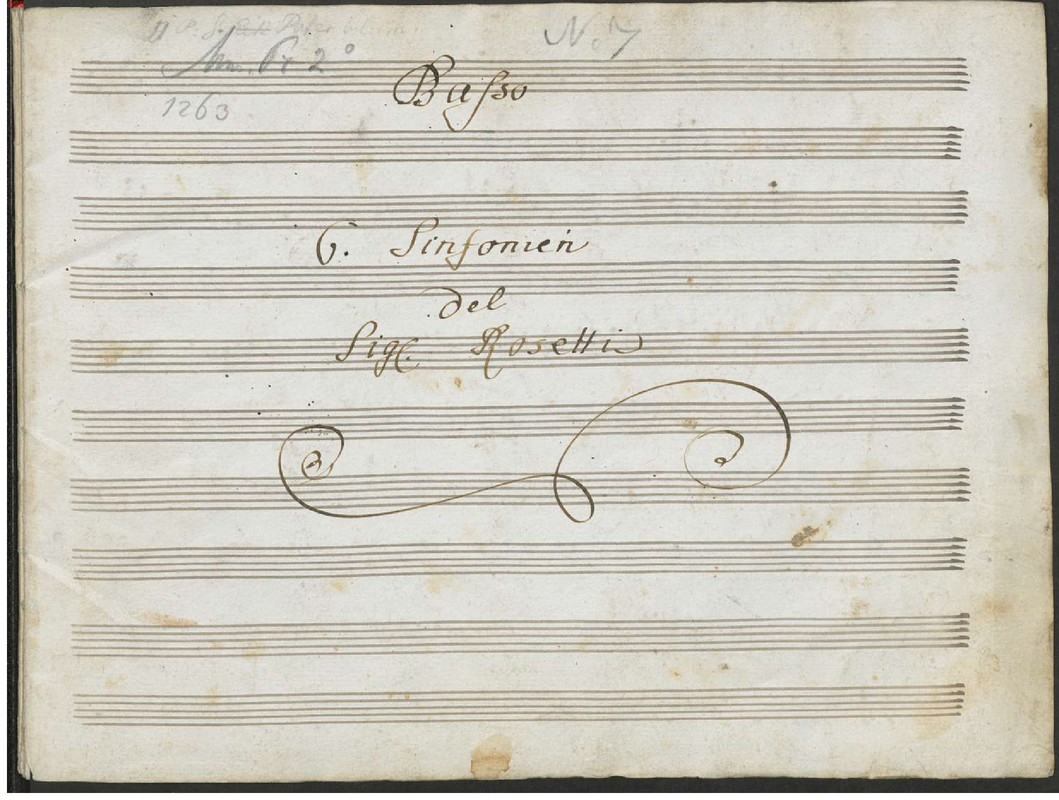 N. 7
Mus. Pr 2°
1263
Basso
6. Sinfonien
del
Sig. Rosetti